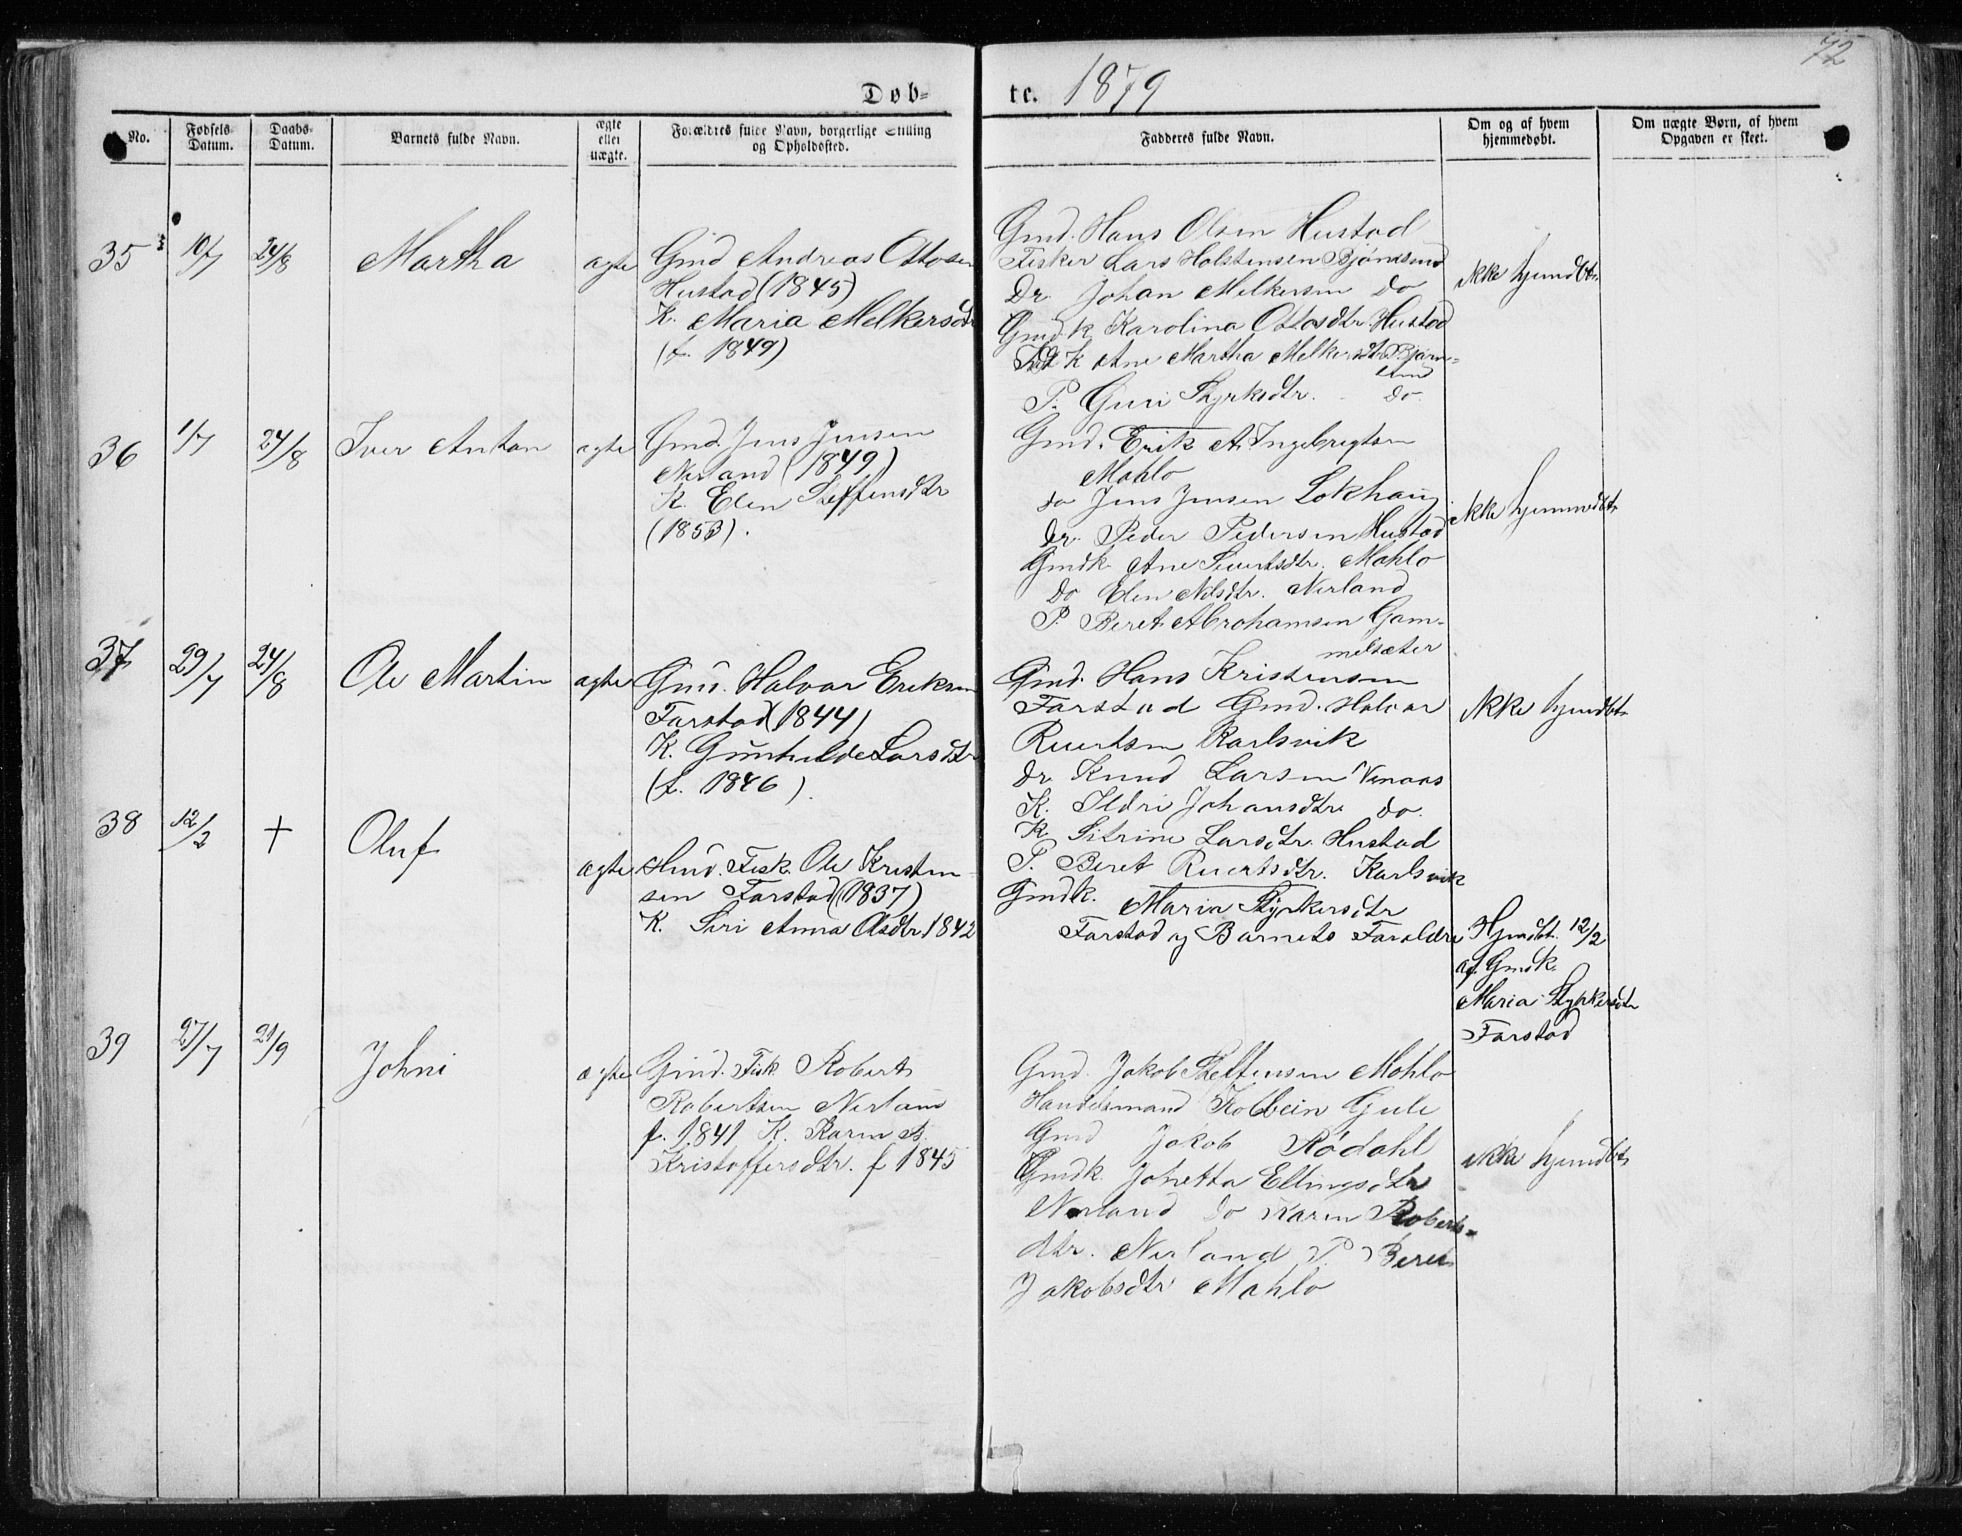 72
Døb- te. 1879
No.
Fødsels-
Datum.
Daabs-
Datum.
Barnets fulde Navn.
ægte
eller
uægte.
Forældres fulde Navn, borgerlige Stilling
og Opholdssted.
Fadderes fulde Navn.
Om og af hvem
hjemmedøbt.
Om uægte Børn, af hvem
Opgaven er skeet.
35 10/7 24/8 Martha ægte
Gmd Andreas Ottosen
Hustad (1845)
K. Maria Melkersdtr
(f. 1849)
Gmd. Hans Olsen Hustad
Fisker Lars Holstensen Bjørnsund
Do. Johan Melkersen do
Gmdk Karolina Ottosdtr. Hustad
K Ane Martha Melkersdtr Bjørn-
sund
P. Guri Styrksdtr. do.
ikke hjemdbt.
36 1/7 24/8 Iver Anton ægte
Gmd. Jens Jensen
Nerland (1849)
K. Elen Steffensdtr
(1853).
Gmd. Erik A. Ingebrigtsen
Mahlo
do Jens Jensen Lokhaug
do. Peder Pedersen Hustad
Gmdk. Ane Sivertsdtr. Mahlo
do Elen Nilsdtr. Nerland
P. Beret Abrahamsen Gam-
melsæter
ikke hjemmedbt.
37 29/7 24/8 Ole Martin ægte
Gmd. Halvor Eriksen
Farstad (1844)
K. Gunhilde Larsdtr
(f. 1846).
Gmd. Hans Kristensen
Farstad Gmd. Halvor
Ruertsen Karlsvik
do. Knud Larsen Venaas
K. Ildri Johansdtr do.
K. Sitrine Larsdtr. Hustad
P. Beret Ruertsdtr. Karlsvik
ikke hjemdbt.
38 12/2 + Oluf ægte
Hmd. Fisk. Ole Kristen-
sen Farstad (1837)
K. Siri Anna Olsdtr. 1842
Gmdk. Maria Styrkersdtr
Farstad og Barnets Forældre
Hjemdbt. 12/2
af Gmdk.
Maria Styrkersdtr
Farstad
39 27/7 21/9 Johni ægte
Gmd. Fisk. Robert
Robertsen Nerland
f. 1841 K. Karen B.
Kristoffersdtr. f 1845
Gmd. Jakob Steffensen Mahlo
Handelsmand Kolbein Gule
Gmd Jakob Rødahl
Gmdk. Johetta Ellingsdtr
Nerland do Karen Roberts-
dtr. Nerland P. Beret
Jakobsdtr Mahlo
ikke hjemdbt.